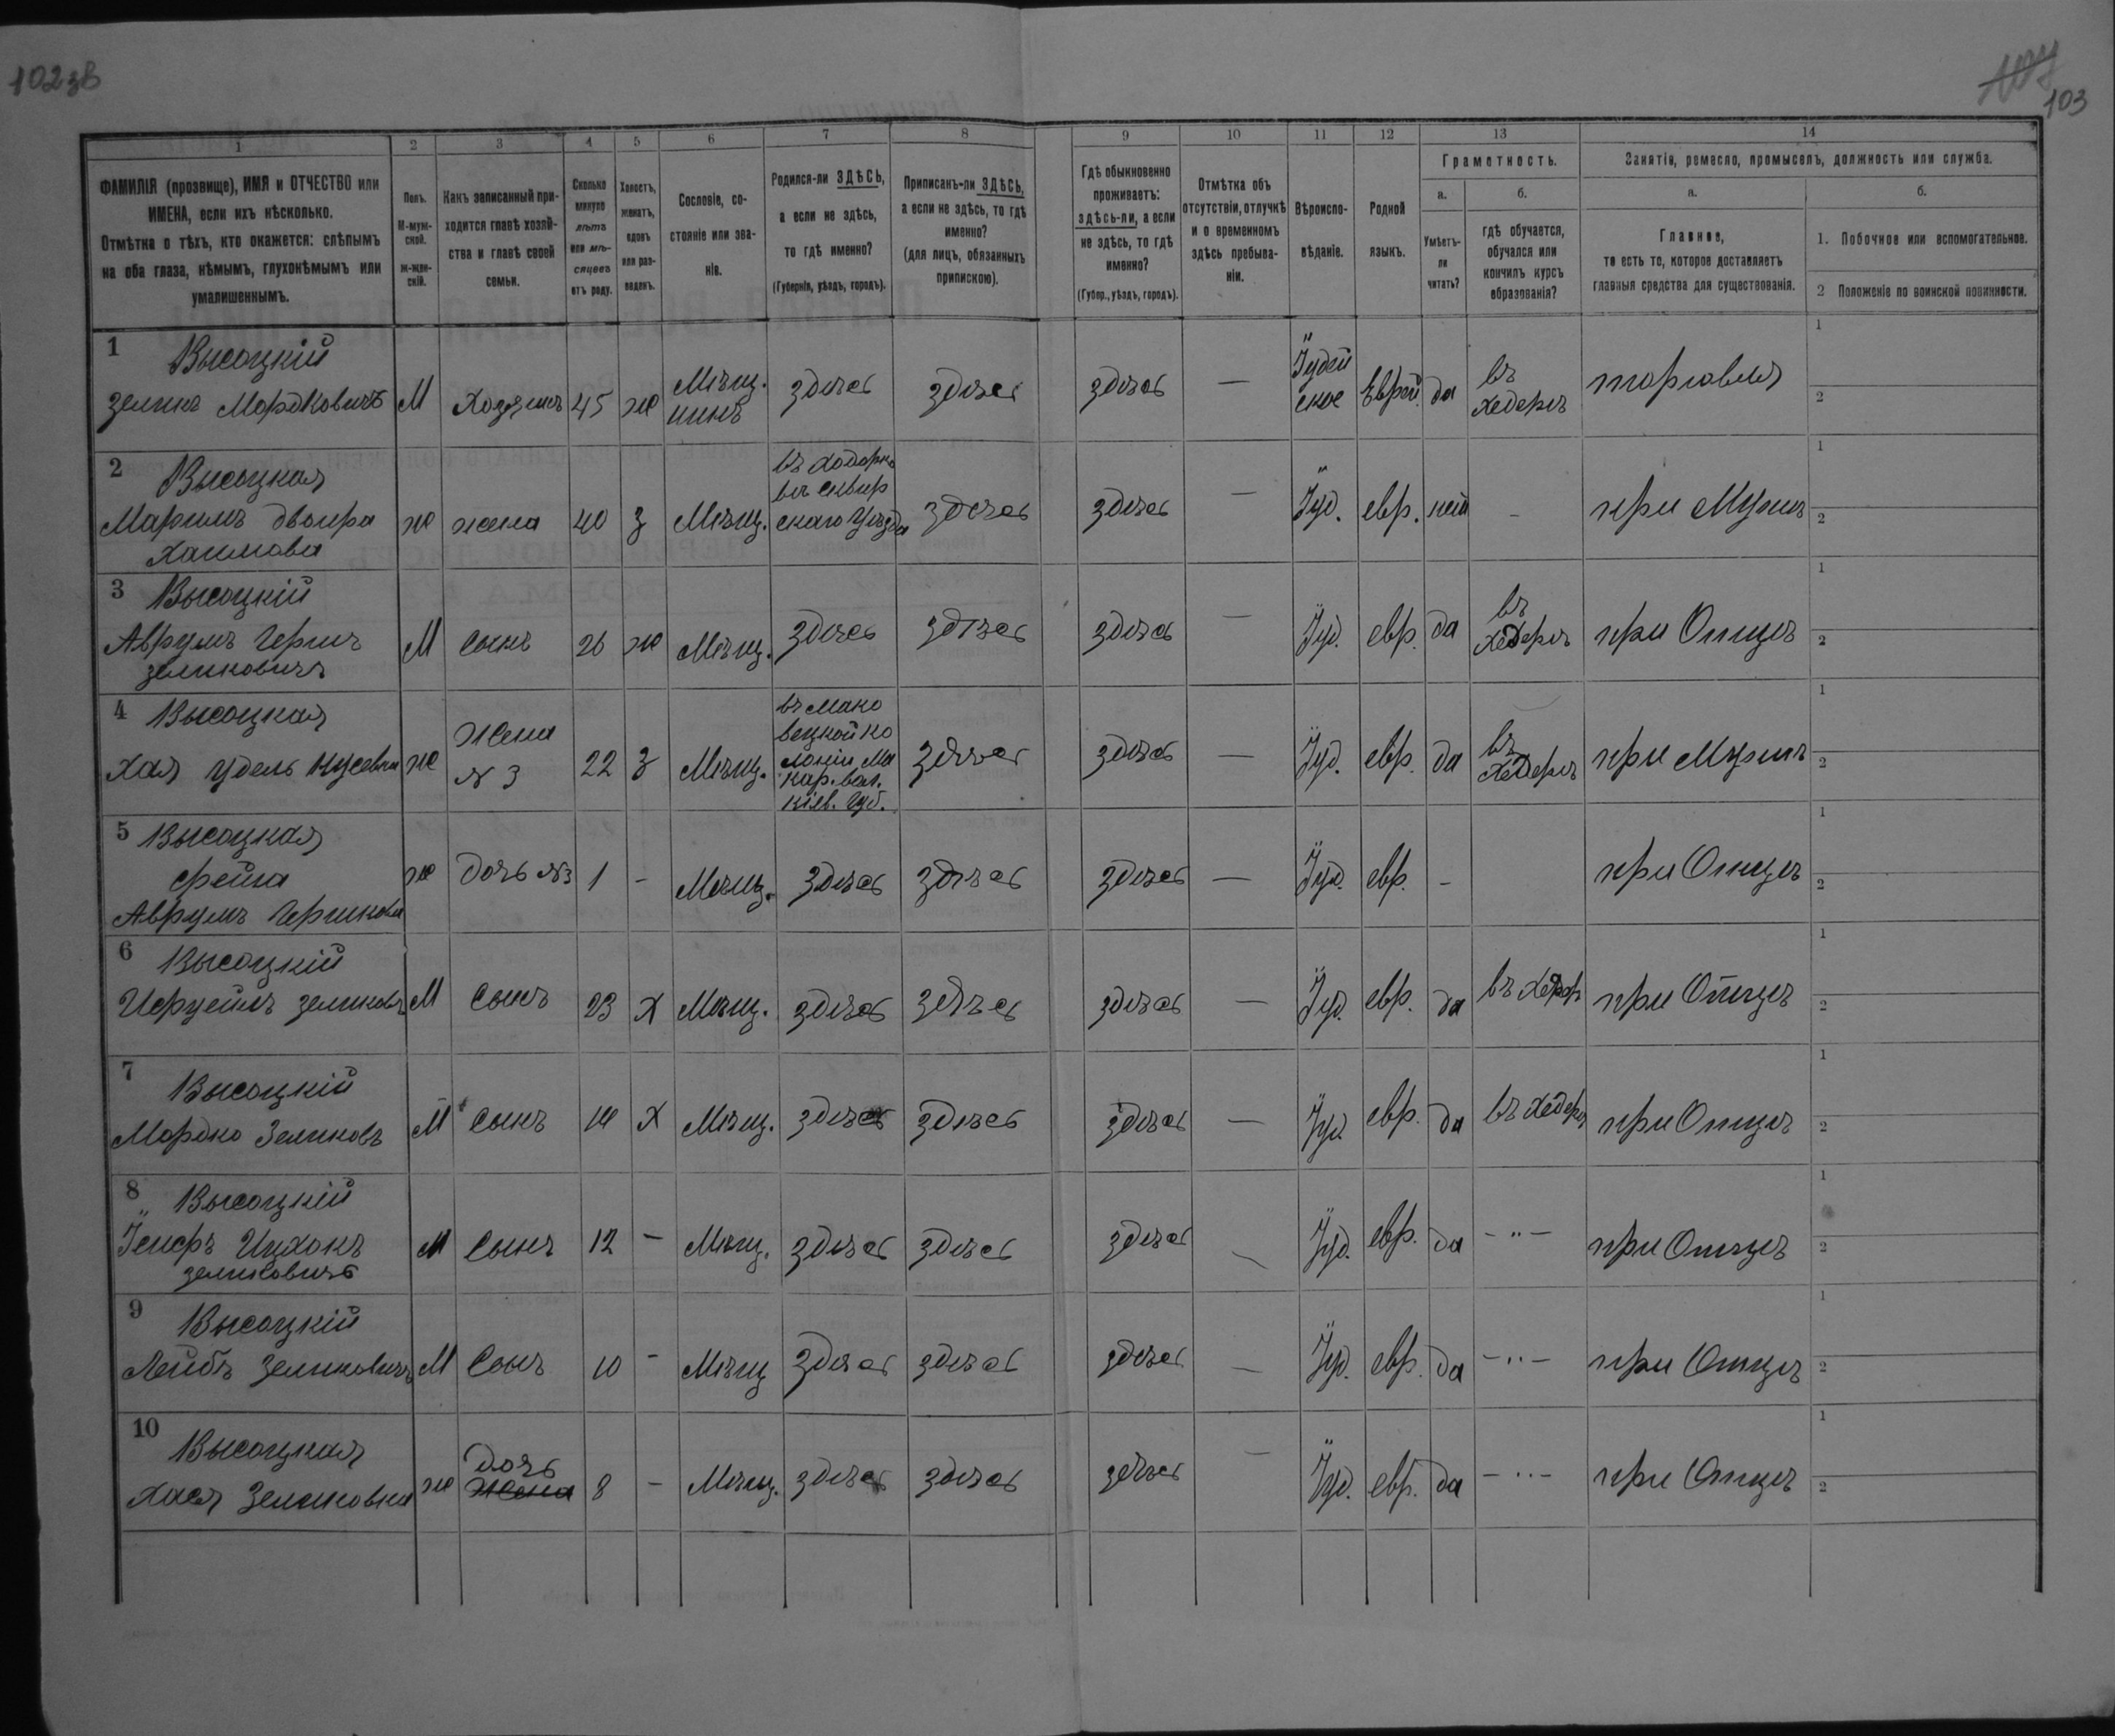 102 зв
103
1
2
3
4
5
6
7
8
9
10
11
12
13
14
ФАМИЛІЯ (прозвище), ИМЯ и ОТЧЕСТВО или
ИМЕНА, если ихъ нѣсколько.
Отмѣтка о тѣхъ, кто окажется: слѣпымъ
на оба глаза, нѣмымъ, глухонѣмымъ или
умалишеннымъ.
Полъ.
М-муж-
ской.
ж-жен-
скій.
Какъ записанный при-
ходится главѣ хозяй-
ства и главѣ своей
семьи.
Сколько
минуло
лѣтъ
или мѣ-
сяцевъ
отъ роду.
Холостъ,
женатъ,
вдовъ
или раз-
веденъ.
Сословіе, со-
стояніе или зва-
ніе.
Родился-ли ЗДѢСЬ,
а если не здѣсь,
то гдѣ именно?
(Губернія, уѣздъ, городъ).
Приписанъ-ли ЗДѢСЬ,
а если не здѣсь, то гдѣ
именно?
(для лицъ, обязанныхъ
припискою).
Гдѣ обыкновенно
проживаетъ:
здѣсь-ли, а если
не здѣсь, то гдѣ
именно?
(Губер., уѣздъ, городъ).
Отмѣтка объ
отсутствіи, отлучкѣ
и о временномъ
здѣсь пребыва-
ніи.
Вѣроиспо-
вѣданіе.
Родной
языкъ.
Грамотность.
а.
Умѣетъ-
ли
читать?
б.
гдѣ обучается,
обучался или
кончилъ курсъ
образованія?
Занятіе, ремесло, промыселъ, должность или служба.
а.
Главное,
то есть то, которое доставляетъ
главныя средства для существованія.
б.
1. Побочное или вспомогательное.
2 Положеніе по воинской повинности.
1 Высоцкій
Зеликъ Мордковичъ М Хозяинъ 45 ж Мѣщ.
нинъ здѣсь здѣсь здѣсь — Іудей
ское Еврей. да въ
хедерѣ торговля
1
2
2 Высоцкая
Маріимъ Двойра
Хаимова ж жена 40 З Мѣщ. въ Ходорко
вѣ Сквир
скаго Уѣзда здѣсь здѣсь — Іуд. евр. нѣт - при Мужѣ
1
2
3 Высоцкій
Аврумъ Гершъ
Зеликовичъ М Сынъ 26 ж Мѣщ. здѣсь здѣсь здѣсь — Іуд. евр. да въ
хедерѣ при Отцѣ
1
2
4 Высоцкая
Хая Удель Нусевна ж Жена
№ 3 22 З Мѣщ. въ Мако
вецкой ко
лоніи Ма
кар. вол.
Кіев. Губ. здѣсь здѣсь — Іуд. евр. да въ
хедерѣ при Мужѣ
1
2
5 Высоцкая
Фейга
Аврумъ Гершкова ж дочь №3 1 - Мѣщ. здѣсь здѣсь здѣсь — Іуд. евр. - при Отцѣ
1
2
6 Высоцкій
Исруель Зеликовъ М Сынъ 23 Х Мѣщ. здѣсь здѣсь здѣсь — Іуд. евр. да въ Хедерѣ при Отцѣ
1
2
7 Высоцкій
Мордко Зеликовъ М Сынъ Х Мѣщ. здѣсь здѣсь здѣсь — Іуд. евр. да въ хедерѣ при Отцѣ
1
2
8 Высоцкій
Ицхокъ
Зеликовичъ М Сынъ 12 - Мѣщ. здѣсь здѣсь здѣсь — Іуд. евр. да -"- при Отцѣ
1
2
9 Высоцкій
Лейбъ Зеликовичъ М Сынъ 10 - Мѣщ здѣсь здѣсь здѣсь — Іуд. евр. да -"- при Отцѣ
1
2
10 Высоцкая
Хася Зеликовна ж Дочь
Жена 8 - Мѣщ. здѣсь здѣсь здѣсь — Іуд. евр. да -"- при Отцѣ
1
2